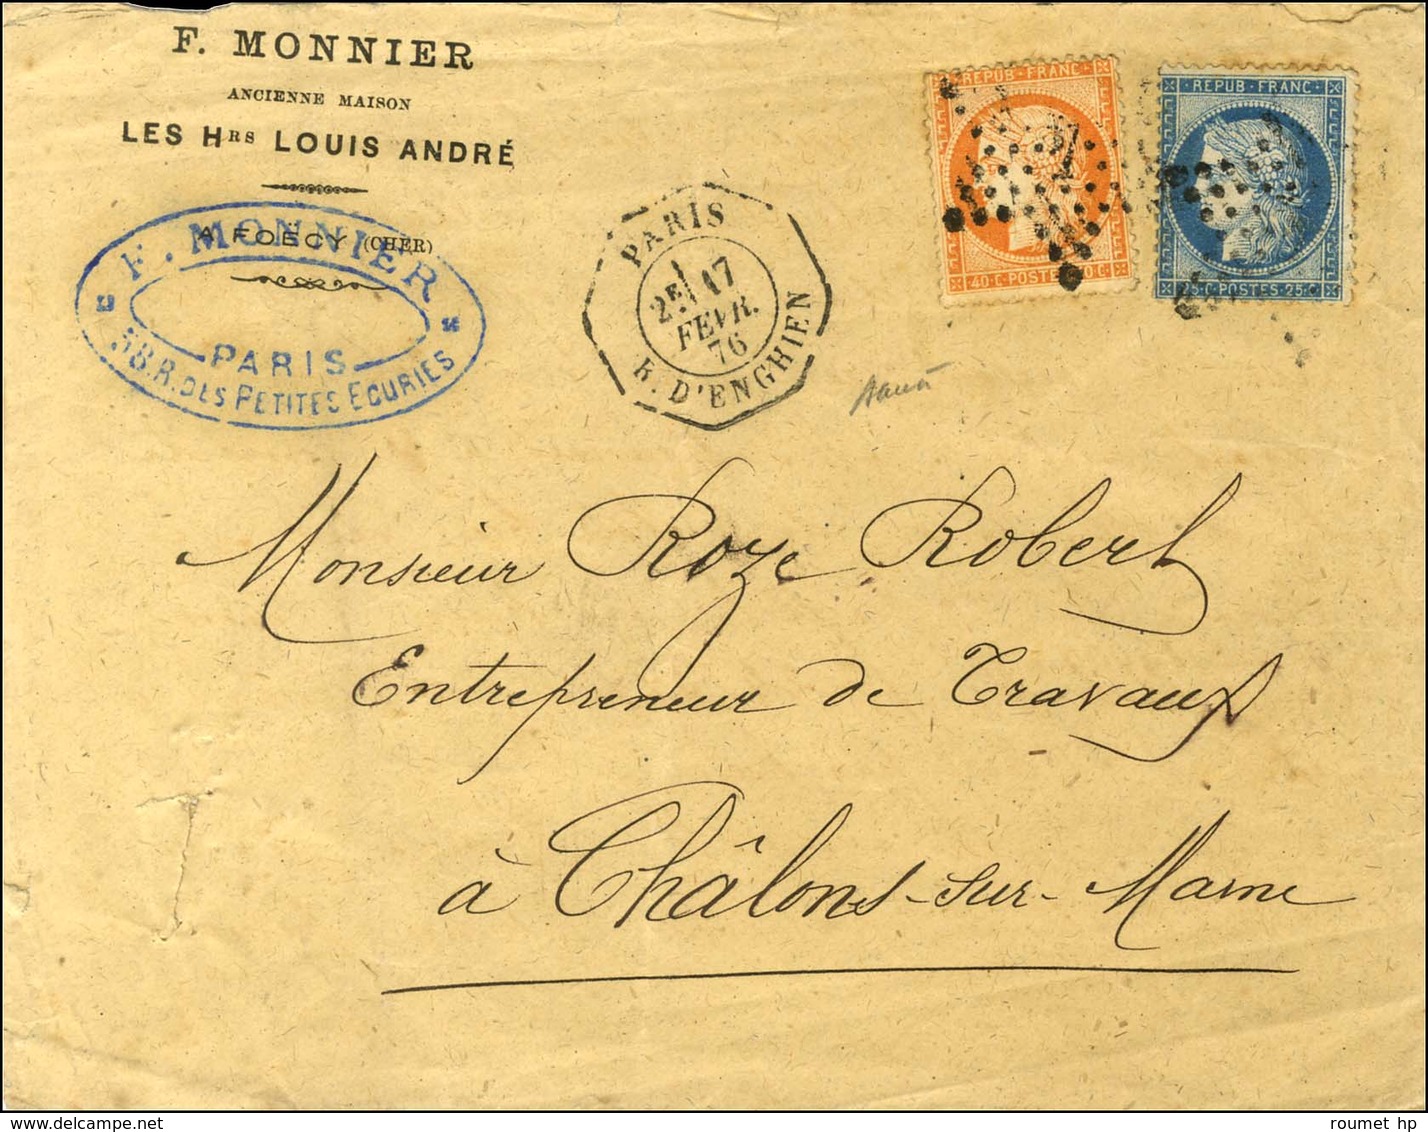 F. MONNIER
ANCIENNE MAISON
LES HRS LOUIS ANDRÉ
A FOECY (CHER)
F. MONNIER
PARIS
58. R. DES PETITES ECURIES
PARIS
2E 17
FEVR.
76
R. D'ENGHIEN
REPUB · FRANC
40 · C · POSTES · 40 · C
REPUB · FRANC
25 · C · POSTES · 25 · C
Monsieur Roze Robert
Entrepreneur de Travaux
à Châlons-sur-Marne
roumet hp